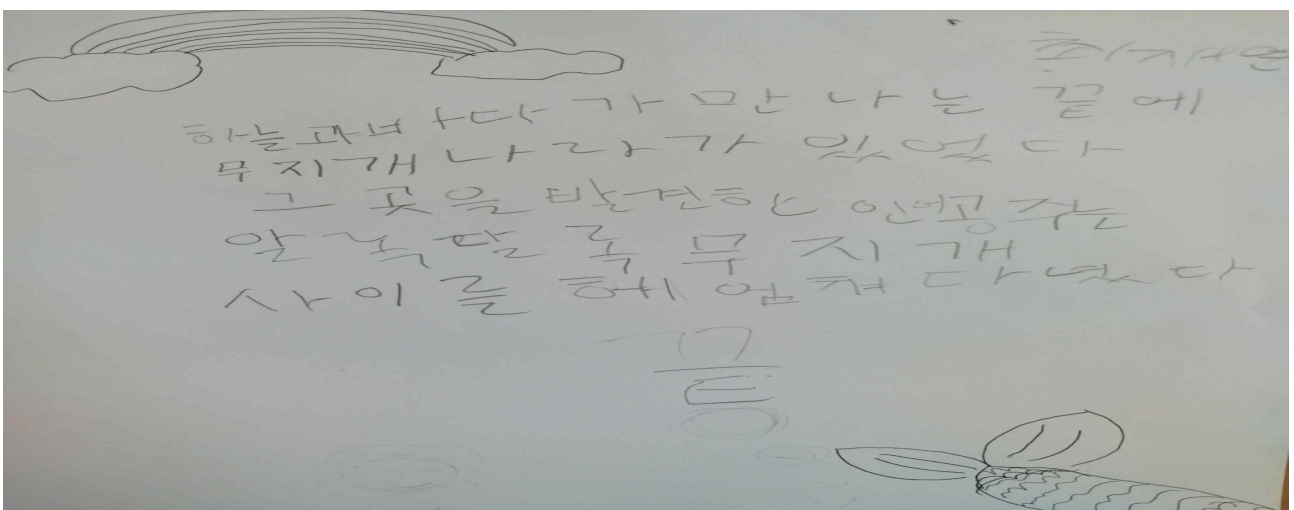 최재연
하늘과 바다가 만나는 끝에
무지개나라가 있었다
그 곳을 발견한 인어공주는
알녹달록 무지개
사이를 헤엄쳐다녔다
끝